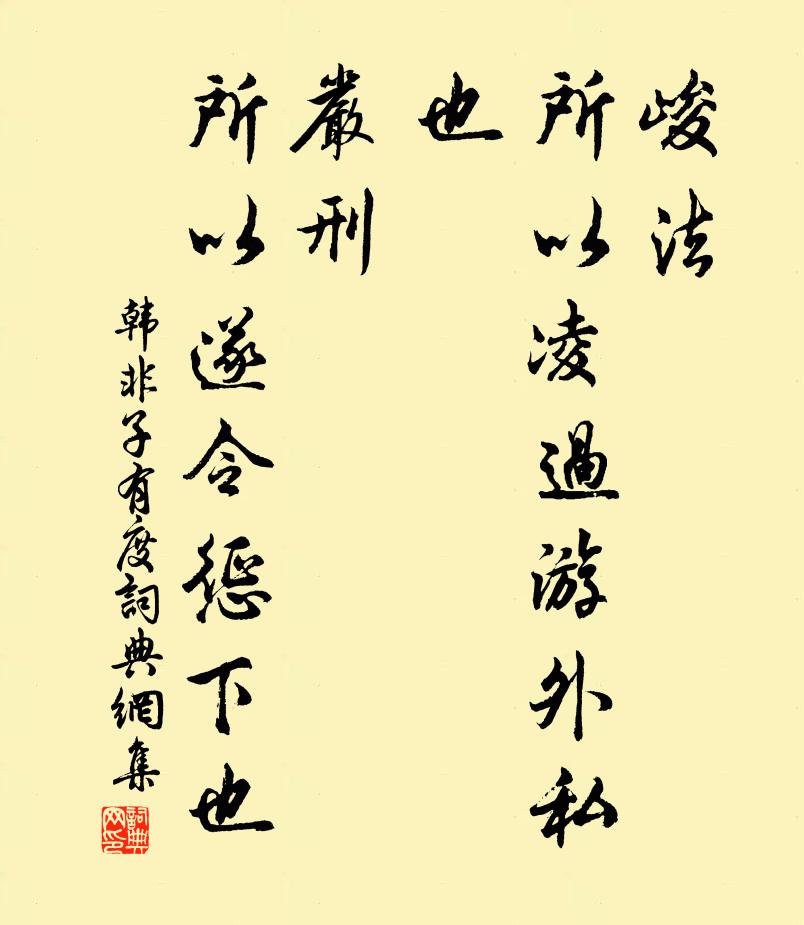 峻法
所以凌過游外私
也
嚴刑
所以遂令懲下也
韩非子有度詞典網集
詞典
网印